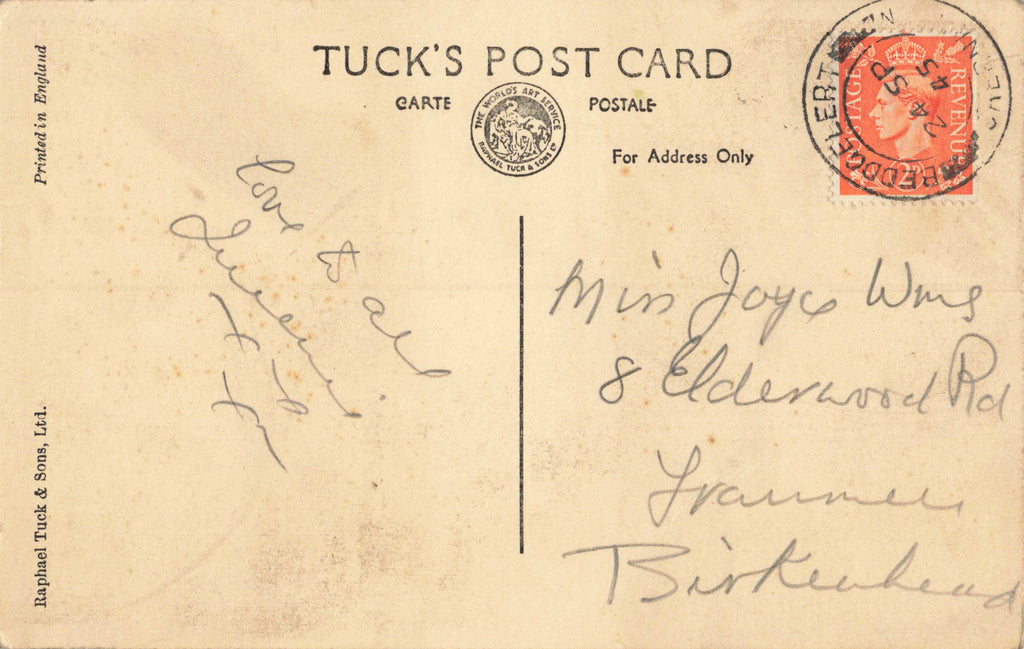 TUCK'S POST CARD
CARTE POSTALE
THE WORLD'S ART SERVICE
RAPHAEL TUCK & SONS LTD
For Address Only
Printed in England
Raphael Tuck & Sons, Ltd.
BEDDGELERT
CAERNARVON
24 SP
45
POSTAGE REVENUE
2D
love to all
Miss Joyce
8 Elderwood Rd
Tranmere
Birkenhead